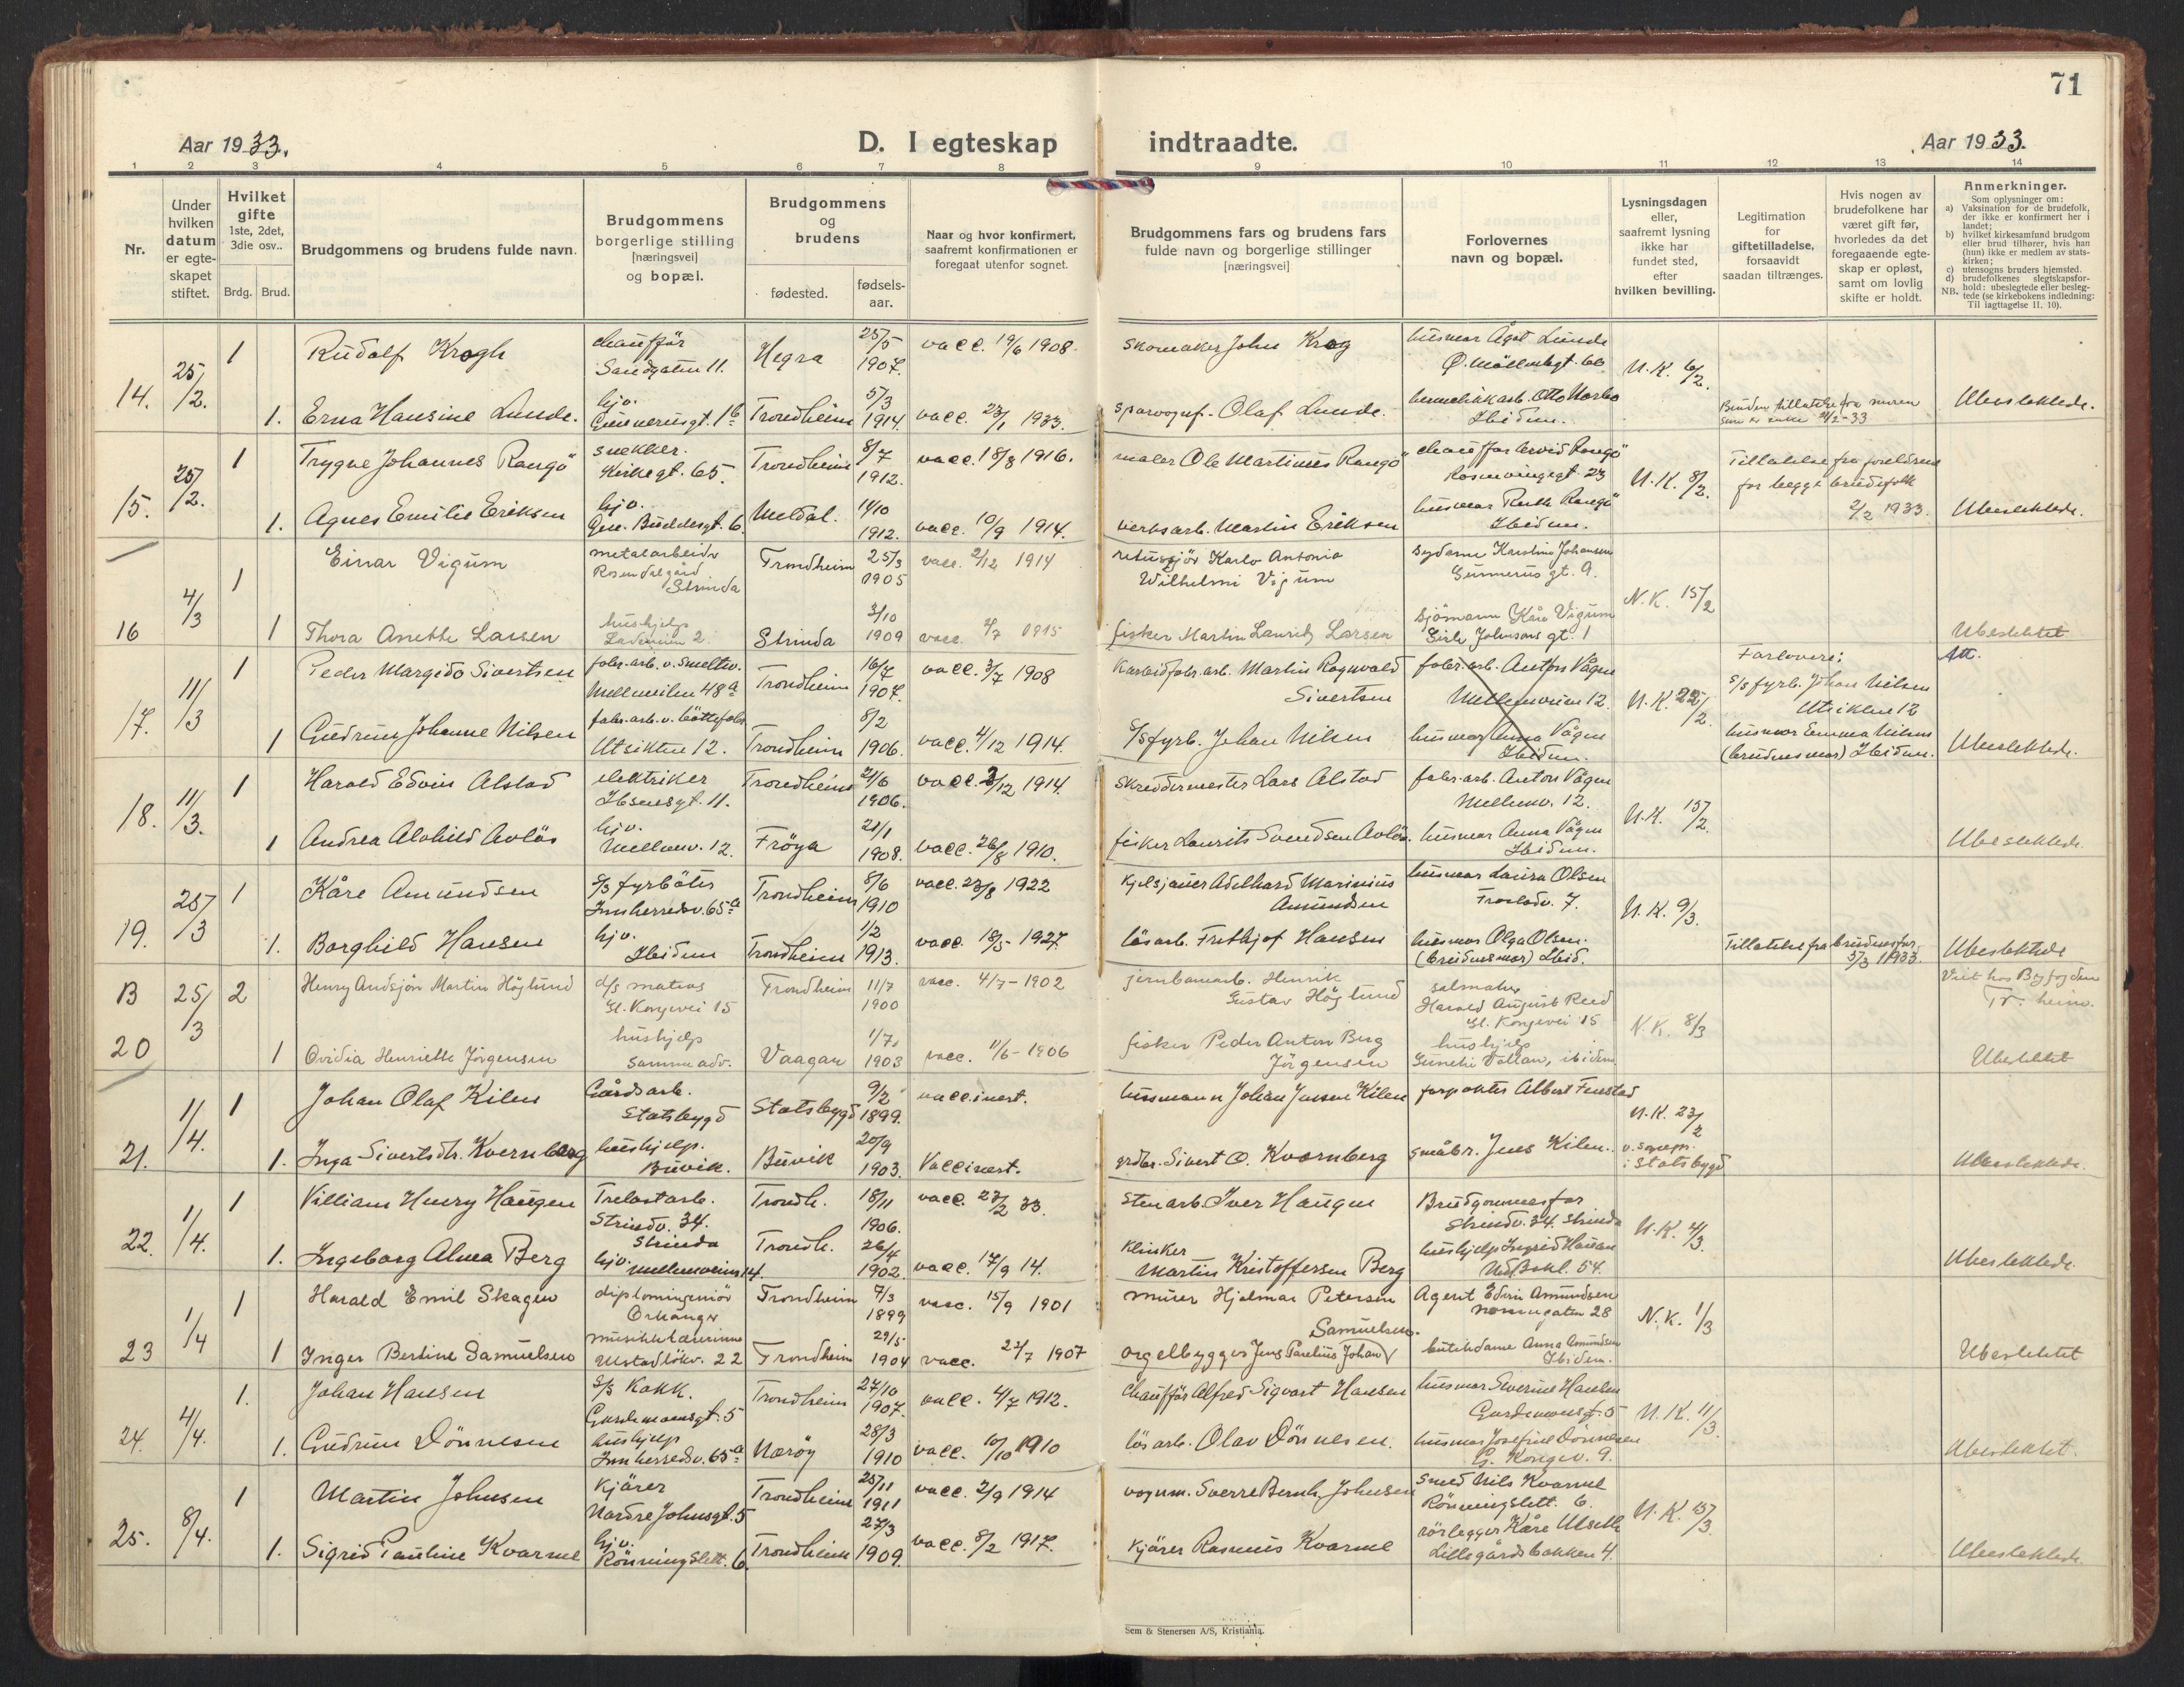 71
Aar 1933.
D. I egteskap indtraadte.
Aar 1933.
1 2 3 4 5 6 7 8 9 10 11 12 13 14
Nr.
Under hvilken datum er egte-skapet stiftet.
Hvilket gifte 1ste, 2det, 3die osv..
Brdg. Brud.
Brudgommens og brudens fulde navn.
Brudgommens borgerlige stilling [næringsvei] og bopæl.
Brudgommens og brudens
fødested.
fødsels-aar.
Naar og hvor konfirmert, saafremt konfirmationen er foregaat utenfor sognet.
Brudgommens fars og brudens fars fulde navn og borgerlige stillinger [næringsvei]
Forlovernes navn og bopæl.
Lysningsdagen eller, saafremt lysning ikke har fundet sted, efter hvilken bevilling.
Legitimation for giftetilladelse, forsaavidt saadan tiltrænges.
Hvis nogen av brudefolkene har været gift før, hvorledes da det foregaaende egte-skap er opløst, samt om lovlig skifte er holdt.
Anmerkninger.
Som oplysninger om:
a) Vaksination for de brudefolk, der ikke er konfirmert her i landet;
b) hvilket kirkesamfund brudgom eller brud tilhører, hvis han (hun) ikke er medlem av stats-kirken;
c) utensogns bruders hjemsted.
d) brudefolkenes slegtskapsfor-hold: ubeslegtede eller besleg-tede (se kirkebokens indledning:
NB. Til iagttagelse II. 10).
14. 25/2. 1 Rudolf Krogh chaufför Sandgaten 11. Hegra 25/5 1907. vacc. 19/6 1908. skomaker John Krog husmor Ågot Lunde Ø. Möllenbgt. 60 N.K. 6/2.
1. Erna Hansine Lunde. hjv. Gunnerusgt. 1b Trondheim 5/3 1914. vacc. 23/1 1933. sparvognf. Olaf Lunde. Otto Norbo Ibidem. Bruden tillatelse fra moren som er enke 24/2-33 Ubeslektede.
15. 25/2. 1 Trygve Johannes Rangö snekker. Kirkegt. 65. Trondheim 8/7 1912. vacc. 18/8 1916. maler Ole Martinus Rangö chauffør Arvid Rangö Rosenvingegt. 23 N.K. 8/2. Tillatelse fra foreldrene for begge brudefolk 2/2 1933.
1. Agnes Emilie Eriksen hjv. Gen. Buddesgt. 6 Meldal. 14/10 1912. vacc. 10/9 1914. verksarb. Martin Eriksen husmor Ruth Rangö Ibidem. Ubeslektede.
16 4/3 1 Einar Vigum metalarbeider Rosendalgård Strinda Trondheim 25/3 1905 vacc. 2/12 1914 Karlo Antonio Wilhelmi Vigum sydame Karoline Johansen Gunnerus gt. 9. N.K. 15/2
1 Thora Anette Larsen hushjelp Ladeveien 2. Strinda 3/10 1909 vacc. 2/7 1915 fisker Martin Laurits Larsen sjömann Kåre Vigum Girle Johnsons gt. 1 Ubeslektet
17. 11/3 1 Peder Margido Sivertsen fabr.arb. v. smeltev. Mellemveien 48a Trondheim 16/7 1907. vacc. 3/7 1908 Karbidfabr.arb. Martin Ragnvald Sivertsen fabr.arb. Anton Vågen Mellemveien 12. N.K. 22/2. Forlovere: s/s fyrb. Johan Nilsen Utsikten 12 Att.
1 Gudrun Johanne Nilsen fabr.arb. v. böttefabr. Utsikten 12. Trondheim 8/2 1906. vacc. 4/12 1914. s/s fyrb. Johan Nilsen husmor Anna Vågen Ibidem. husmor Emma Nilsen (brudens mor) Ibidem. Ubeslektede.
18. 11/3. 1 Harald Edvin Alstad elektriker Ibsensgt. 11. Trondheim 21/6 1906. vacc. 3/12 1914. Skreddermester Lars Alstad fabr.arb. Anton Vågen Mellemv. 12. N.K. 15/2.
1 Andrea Alvhild Avlös hjv. Mellemv. 12. Fröya 21/1 1908. vacc. 26/8 1910. fisker Laurits Svendsen Avlös. husmor Anna Vågen Ibidem. Ubeslektede.
19. 25/3 1 Kåre Amundsen s/s fyrböter Innherredsv. 65a Trondheim 8/6 1910 vacc. 23/8 1922 Adelhard Marinius Amundsen husmor Laura Olsen Frostadv. 7. N.K. 9/3.
1. Borghild Hansen hjv. Ibidem Trondheim 1/2 1913. vacc. 18/5 1927. lösarb. Frithjof Hansen husmor Olga Olsen. (brudens mor) Ibid. Tillatelse fra brudens far 5/3 1933. Ubeslektede
B 20 25/3 2 Henry Andsjön Martin Höglund d/s matros Gl. Kongevei 15 Trondheim 11/7 1900 vacc. 4/7-1902 jernbanearb. Henrik Gustav Höglund salmaker Harald August Reed Gl. Kongevei 15 N.K. 8/3 Viet hos Byfogden Tr.heim.
1 Ovidia Henriette Jörgensen hushjelp samme adr. Vaagan 1/7 1903 vacc. 11/6-1906 fisker Peder Anton Berg Jörgensen hushjelp Gunelie Vollan, ibidem Ubeslektet
21. 1/4. 1 Johan Olaf Kilen Gårdsarb. Statsbygd Statsbygd 9/2 1899. vaccinert. husmann Johan Jensen Kilen forpakter Albert Fenstad N.K. 23/2 v. sognepr. i Statsbygd
1. Inga Sivertsdtr. Kvernberg hushjelp. Buvik. Buvik 20/9 1903. Vaccinert. grdbr. Sivert O. Kvernberg småbr. Jens Kilen. Ubeslektede.
22. 1/4. 1 Villiam Henry Haugen Trelastarb. Strindv. 34. Strinda Trondh. 18/11 1906. vacc. 23/2 33. Stenarb. Iver Haugen Brudgommens far Strindv. 34. Strinda N.K. 4/3.
1. Ingeborg Alma Berg hjv. Mellemveien 14. Trondh. 26/4 1902. vacc. 17/9 14. Klinker Martin Kristoffersen Berg hushjelp Ingrid 54. Ubeslektede.
23 1/4 1 Harald Emil Skagen diplomingeniör Orkanger Trondheim 7/3 1899 vacc. 15/9 1901 murer Hjalmar Petersen Agent Edvin Amundsen gaten 28 N.K. 1/3
1 Inger Bertine Samuelsen musikklærerinne Ulstadlökv. 22 Trondheim 29/5 1904 vacc. 22/7 1907 orgelbygger Jens Parelius Johan Samuelsen. butikdame Anna Amundsen Ibidem. Ubeslektet
24. 4/4. 1. Johan Hansen s/s Kokk. Gardemoensgt. 5 Trondheim 27/10 1907. vacc. 4/7 1912. Chaufför Alfred Sigvart Hansen husmor Severine Hansen Gardemoensgt. 5 N.K. 11/3.
1. Gudrun Dönnesen hushjelp Innherredsv. 65a Nærøy 28/3 1910 vacc. 10/10 1910 lösarb. Olav Dönnesen. husmor Josefine Dönnesen G. Kongev. 9. Ubeslektet.
25. 8/4. 1 Martin Johnsen Kjörer Nordre Johnsgt. 5 Trondheim 25/11 1911 vacc. 2/9 1914 vognm. Sverre Bernh. Johnsen smed Nils Kvarme Rönningslett. 6. N.K. 15/3.
1. Sigrid Pauline Kvarme hjv. Rönningslett. 6. Trondheim 27/3 1909. vacc. 8/2 1917. Kjörer Rasmus Kvarme rörlegger Kåre Ulseth Lillegårdsbakken 4. Ubeslektede.
Sem & Stenersen A/S, Kristiania.